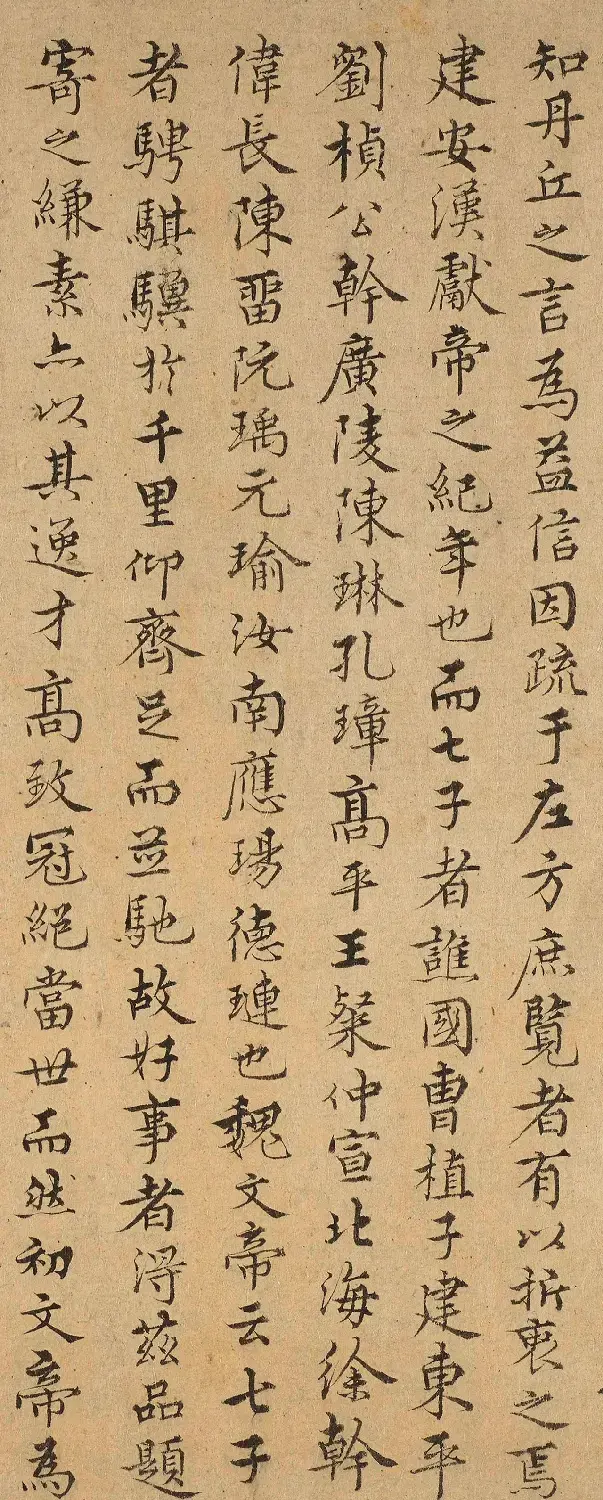 知丹丘之言為益信因疏于左方庶覽者有以折衷之焉
建安漢獻帝之紀年也而七子者譙國曹植子建東平
劉楨公幹廣陵陳琳孔璋高平王粲仲宣北海徐幹
偉長陳留阮瑀元瑜汝南應瑒德璉也魏文帝云七子
者騁騏驥於千里仰齊足而並馳故好事者得茲品題
寄之縑素亦以其逸才高致冠絕當世而然初文帝為